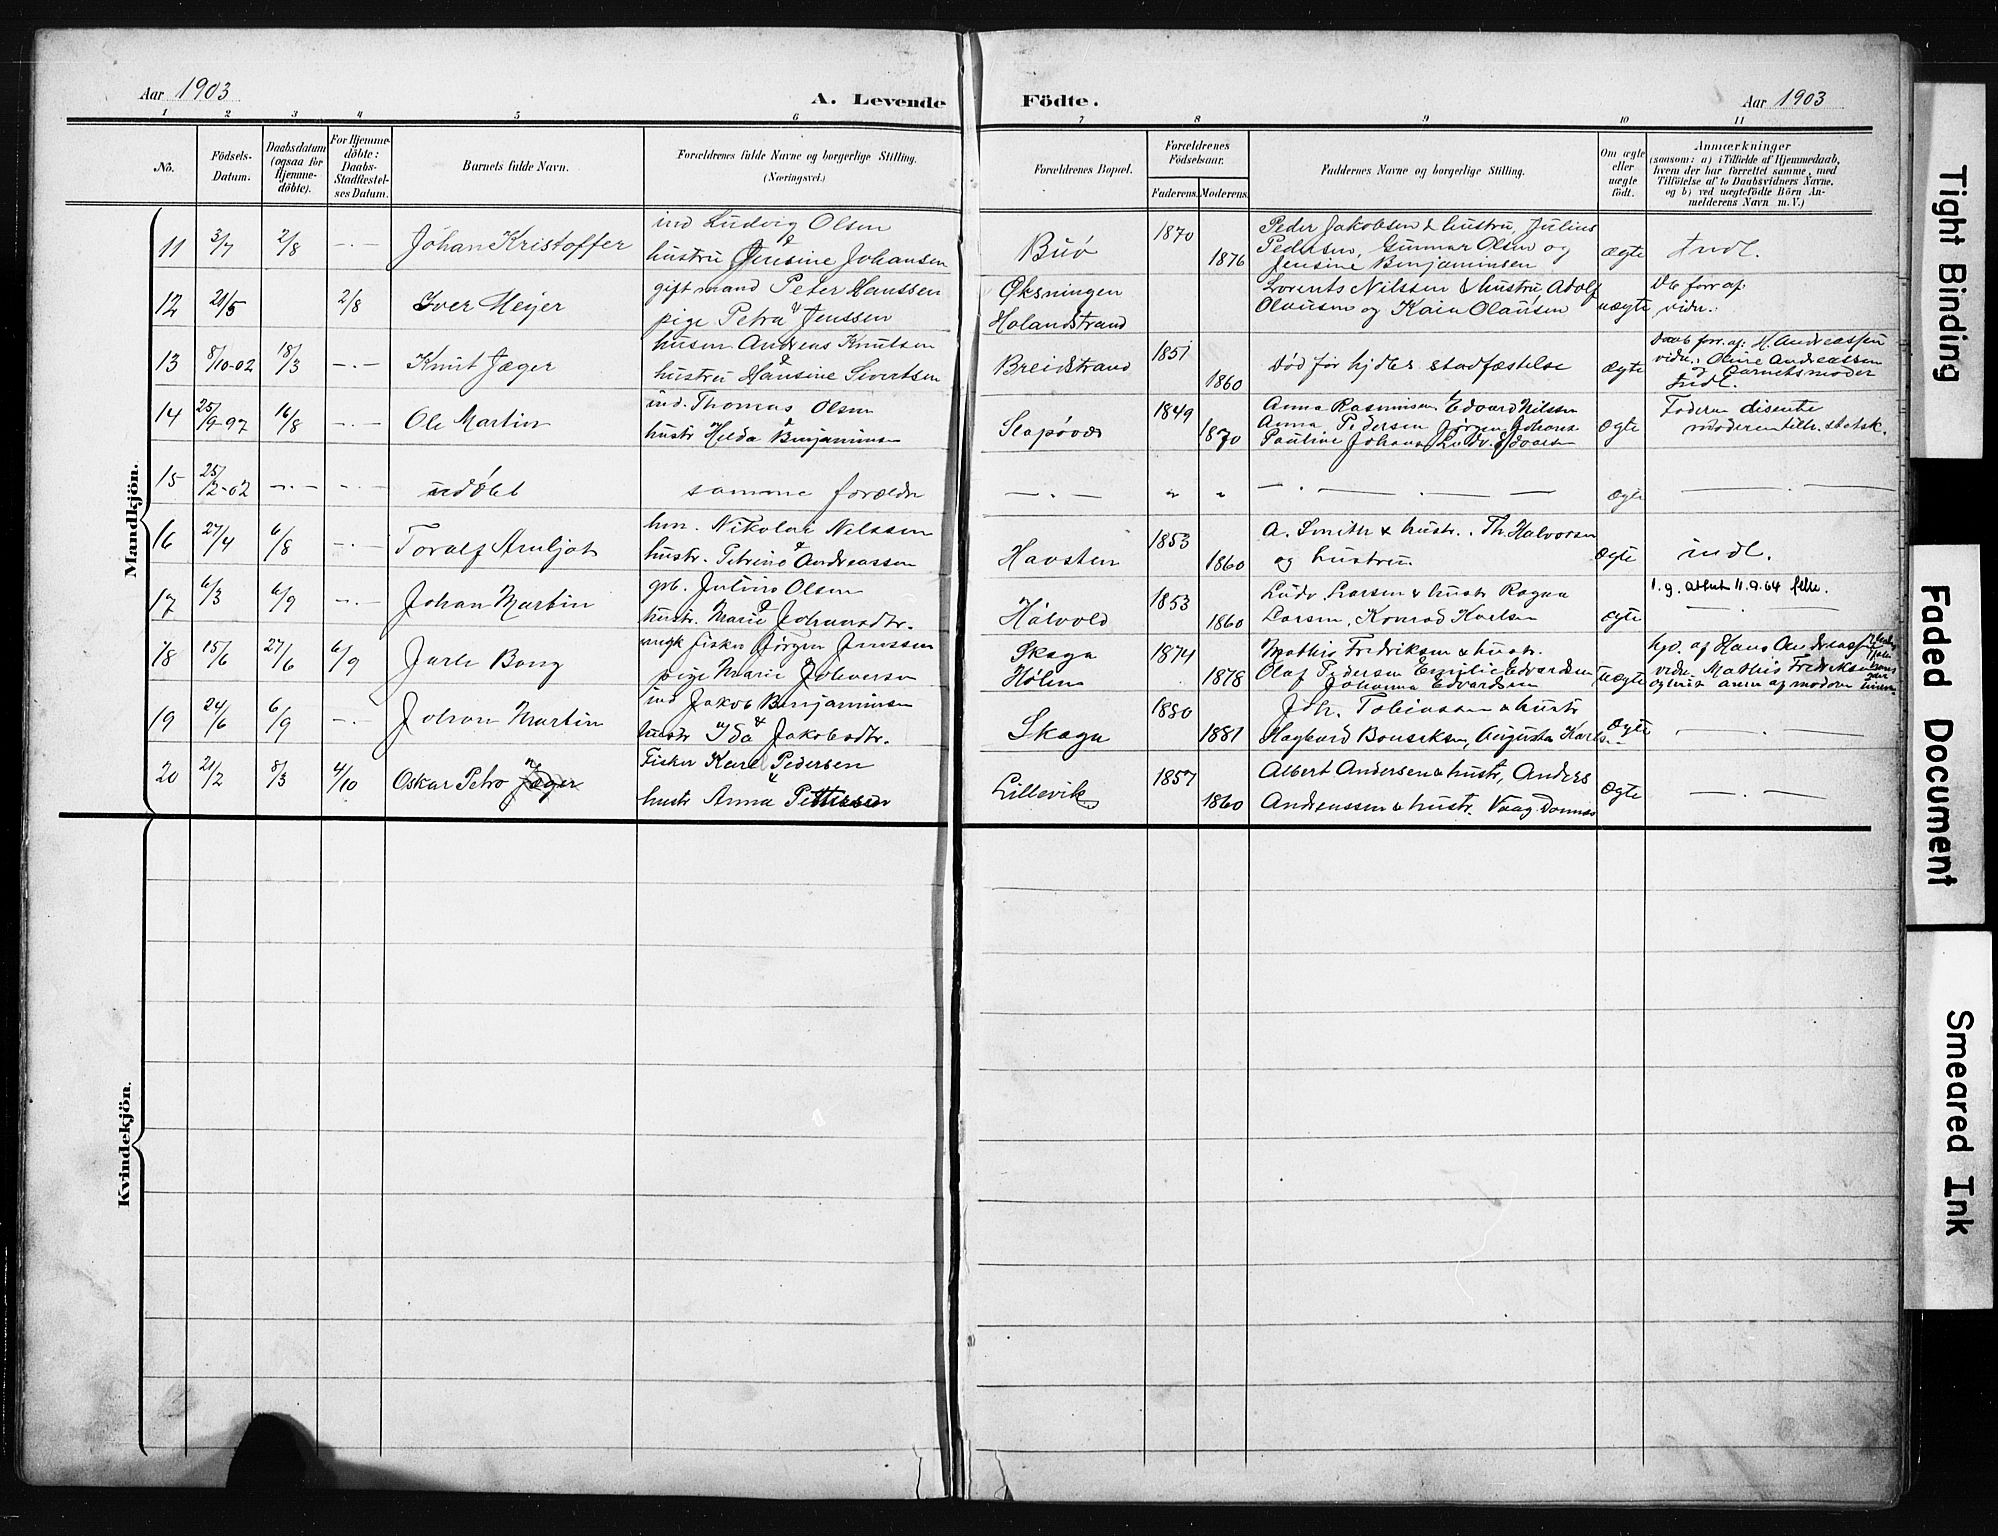 Aar 1903
A. Levende Födte.
Aar 1903
1 2 3 4 5 6 7 8 9 10 11
No.
Födsels-Datum.
Daabsdatum (ogsaa for Hjemme-döbte).
For Hjemme-döbte: Daabs-Stadfæstel-ses Datum.
Barnets fulde Navn.
Forældrenes fulde Navne og borgerlige Stilling.
(Næringsvei.)
Forældrenes Bopæl.
Forældrenes Födselsaar.
Faderens. Moderens.
Faddernes Navne og borgerlige Stilling.
Om ægte eller uægte födt.
Anmærkninger
(saasom: a) i Tilfælde af Hjemmedaab, hvem der har forrettet samme, med Tilföielse af to Daabsvidners Navne, og b) ved uægtefödte Börn An-melderens Navn m. V.)
Mandkjön.
11 3/7 2/8 -.- Johan Kristoffer
ind Ludvig Olsen &
hustru Jensine Johansen
Buø 1870 1876
Peder Jakobsen & hustru, Julius
Pedersen, Gunnar Olsen og
Jensine Benjaminsen
ægte Indl.
12 20/5 2/8 Iver Meyer
gift mand Peter Hanssen
pige Petra Jenssen
Øksningen
Holandstrand
Lorents Nilssen & hustru Adolf
Olausen og Kaia Olausen
uægte
vidn.:
13 8/10-02 18/3 -.- Knut Jæger
husm Andreas Knutsen &
hustru Hansine Sivertsen
Breidstrand 1851 1860
Død før hjdbs stadfæstelse
ægte
Daab forr. af: H. Andreassen
vidn.: Oline Andreassen
& Barnets moder
Indl.
14 25/9-97 16/8 -.- Ole Martin
ind. Thomas Olsen &
hustr Hilda Benjaminsen
Slapøvær 1849 1870
Anna Rasmussen, Edvard Nilssen
Anna Pedersen Jørgen Johans
Pauline Johans Ludv. Edvarsen
ægte
Faderen disente
moderen tilh. statsk.
15 25/2-02 -.- -.- udøbt
samme forældr
-.- " " -.-
ægte
16 27/4 6/8 -.- Toralf Arnljot
hm. Nikolai Nilssen &
hustr. Petrine Andreassen
Havsten 1853 1860
A. Smith & hustr. Th. Halvorsen
og hustru
ægte indl.
17 6/3 6/9 -.- Johan Martin
grb. Julius Olsen &
hustr. Marie Johansdtr.
Halvold 1853 1860
Ludv. Larsen & hustr Ragna
Larsen, Konrad Karlsen
ægte
1.g. attest 11.9.64
18 15/6 27/6 6/9 Jarle Bang
ungk fisker Jørgen Jenssen
pige Marie
Skaga
Holm 1874 1878
Mathis Fredriksen & hustr.
Olaf Pedersen Emilie Edvardsen
Johanna Edvardsen
uægte
hjd. af Hans Andreassen
vidn. Mathis Fredriksen
19 24/6 6/9 -.- Johan Martin
ind Jakob Benjaminsen &
hustr Ida Jakobsdtr.
Skaga 1880 1881
Joh. Tobiassen & hustr
Hagbard Bendiksen, Augusta Karls.
ægte -.-
20 21/2 8/3 4/10 Oskar Petro Jæger
Fisker Karl Pedersen &
hustr Anna Pettersen
Lillevik 1857 1860
Albert Andersen & hustr, Anders
Andreassen & hustr. Vaag Dønnes
ægte -.-
Kvindekjön.
Tight Binding
Faded Document
Smeared Ink